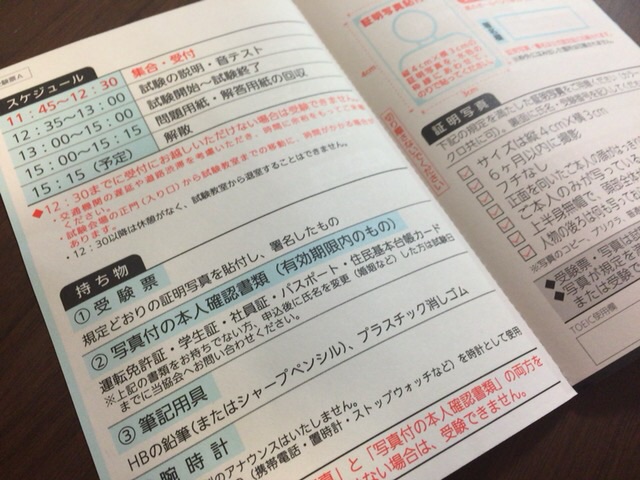 スケジュール
11：45～12：30 集合・受付
12：35～13：00 試験の説明・音テスト
13：00～15：00 試験開始～試験終了
15：00～15：15 問題用紙・解答用紙の回収
15：15（予定） 解散
◆12：30までに受付にお越しいただけない場合は受験できません。
・交通機関の遅延や道路渋滞を考慮いただき、時間に余裕をもって
ください。
・試験会場の正門（入り口）から試験教室までの移動に、時間がかかる場合が
あります。
・12：30以降は休憩がなく、試験教室から退室することはできません。
持ち物
①受験票
規定どおりの証明写真を貼付し、署名したもの
②写真付の本人確認書類（有効期限内のもの）
運転免許証・学生証・社員証・パスポート・住民基本台帳カード
※上記の書類をお持ちでない方、申込後に氏名を変更（婚姻など）した方は試験日
までに当協会へお問い合わせください。
③筆記用具
HBの鉛筆（またはシャープペンシル）、プラスチック消しゴム
腕時計
のアナウンスはいたしません。
（携帯電話・置時計・ストップウォッチなど）を時計として使用
真」と「写真付の本人確認書類」の両方を
ない場合は、受験できません。
証明写真
4cm
3cm
証明写真
下記の規定を満たした証明写真を
サイズは縦4cm×横3cm
6ヶ月以内に撮影
フチなし
正面を向いたご本人の顔
ご本人のみが写ってい
上半身無帽で、
人物の後ろは何も写って
※写真のコピー、プリクラ、
◆受験票・写真は
◆写真が規定を
または受験
TOEIC使用欄